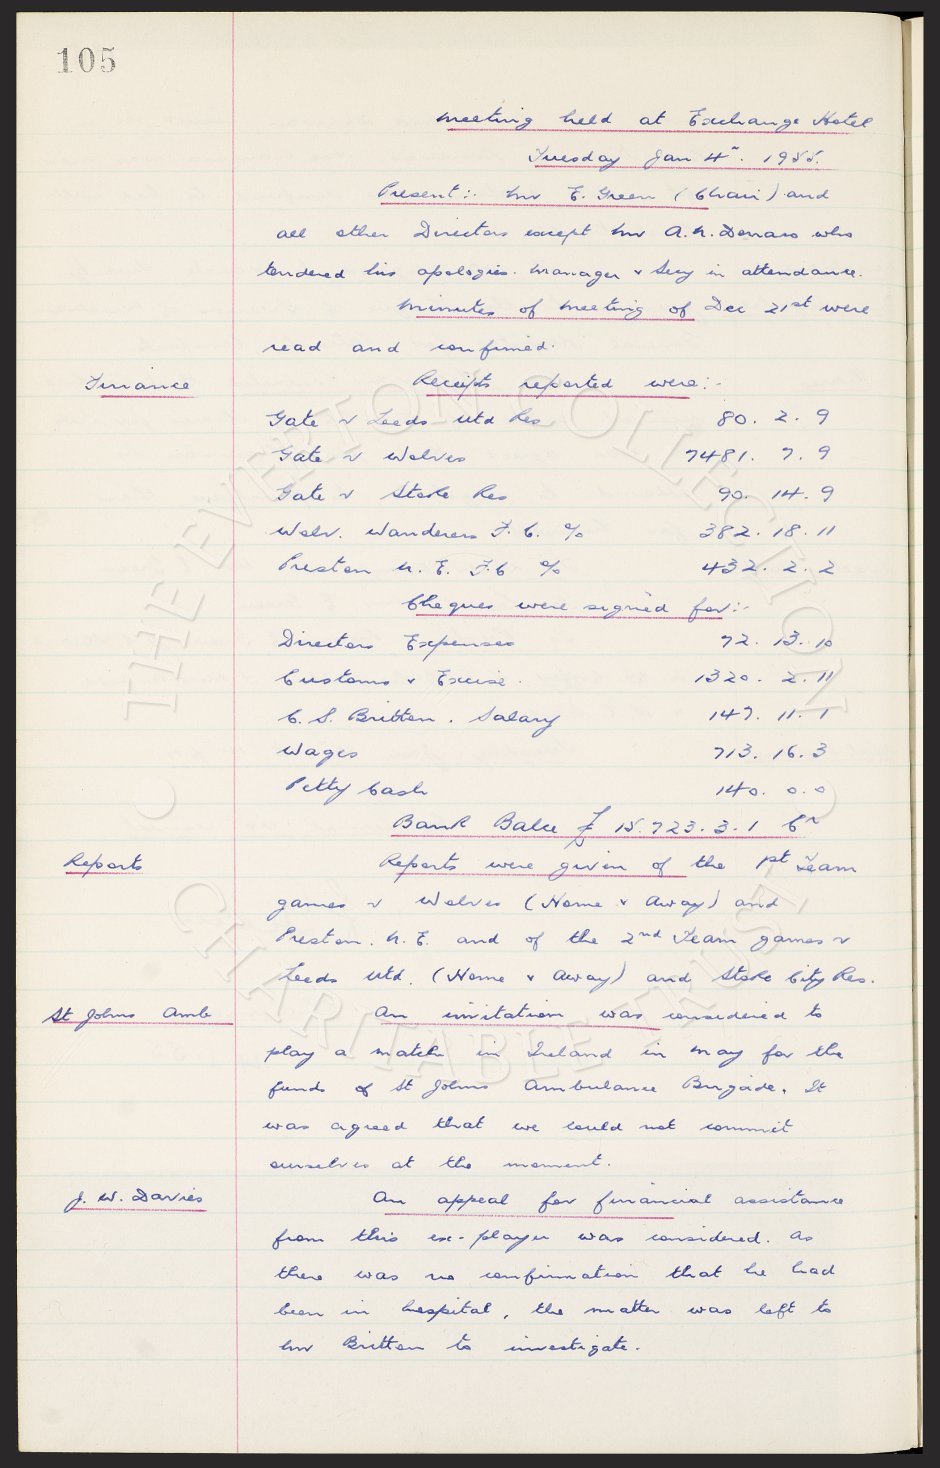 105
Meeting held at Exchange Hotel
Tuesday Jan 4th. 1955.
Present:- Mr E. Green (Chair) and
all other Directors except Mr A. N. Denaro who
tendered his apologies. Manager & Secy in attendance.
Minutes of Meeting of Dec 21st were
read and confirmed.
Finance
Receipts reported were:-
Gate v Leeds Utd Res 80. 2. 9
Gate v Wolves 7481. 7. 9
Gate v Stoke Res 90. 14. 9
Wolv. Wanderers F. C. % 382. 18. 11
Preston N. E. F.C % 432. 2. 2
Cheques were signed for:-
Directors Expenses 72. 13. 10
Customs & Excise. 1320. 2. 11
C. S. Britton. Salary 147. 11. 1
Wages 713. 16. 3
Petty Cash 140. 0. 0
Bank Balce £ 15.723. 3. 1 Cr
Reports
Reports were given of the 1st Team
games v Wolves (Home & Away) and
Preston. N. E. and of the 2nd Team games v
Leeds Utd. (Home & Away) and Stoke City Res.
St Johns Amb
An invitation was considered to
play a match in Ireland in May for the
funds of St Johns Ambulance Brigade. It
was agreed that we could not commit
ourselves at the moment.
J. W. Davies
An appeal for financial assistance
from this ex-player was considered. As
there was no confirmation that he had
been in hospital, the matter was left to
Mr Britton to investigate.
© THE EVERTON COLLECTION
CHARITABLE TRUST